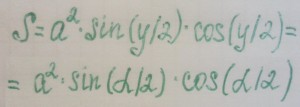 S=a²·sin(y/2)·cos(y/2)=
=a²·sin(α/2)·cos(α/2)